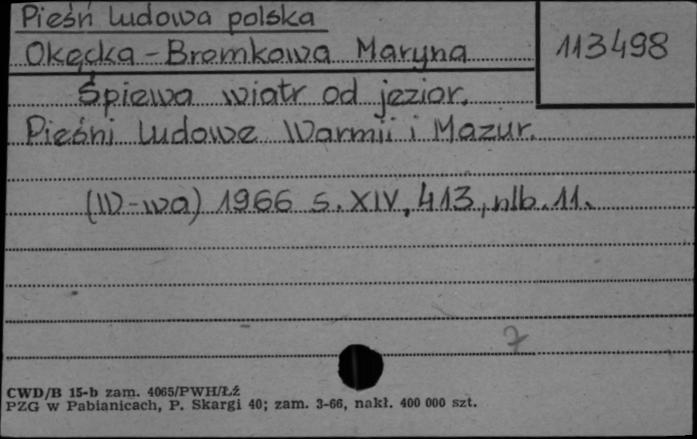 Pieśń ludowa polska
Okęcka-Bromkowa Maryna
113498
Śpiewa wiatr od jezior.
Pieśni ludowe Warmii i Mazur.
(W-wa) 1966 s. XIV, 413, nlb. 11.
7
CWD/B 15-b zam. 4065/PWH/Łź
PZG w Pabianicach, P. Skargi 40; zam. 3-66, nakł. 400 000 szt.